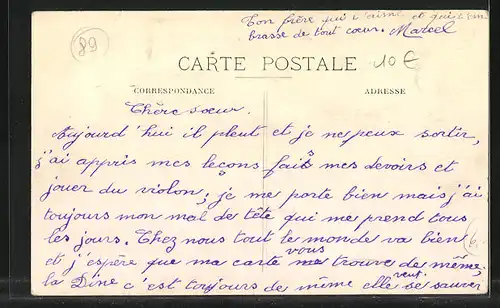 Ton frère qui t'aime et qui t'em
brasse de tout cœur. Marcel
89
10 €
CARTE POSTALE
CORRESPONDANCE
ADRESSE
Chère sœur.
Aujourd'hui il pleut et je ne peux sortir,
j'ai appris mes leçons fais mes devoirs et
jouer du violon; je me porte bien mais j'ai
toujours mon mal de tête qui me prend tous
les jours. Chez nous tout le monde va bien
et j'espère que ma carte vous trouve de même,
la Dine c'est toujours de même elle veut se sauver